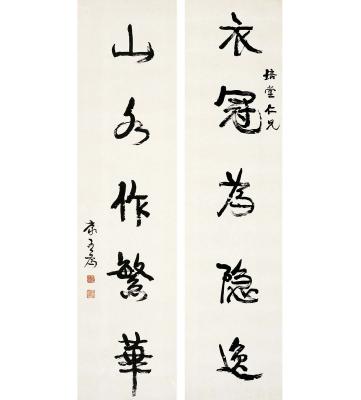 衣冠為隱逸
培堂仁兄
山水作繁華
康有為